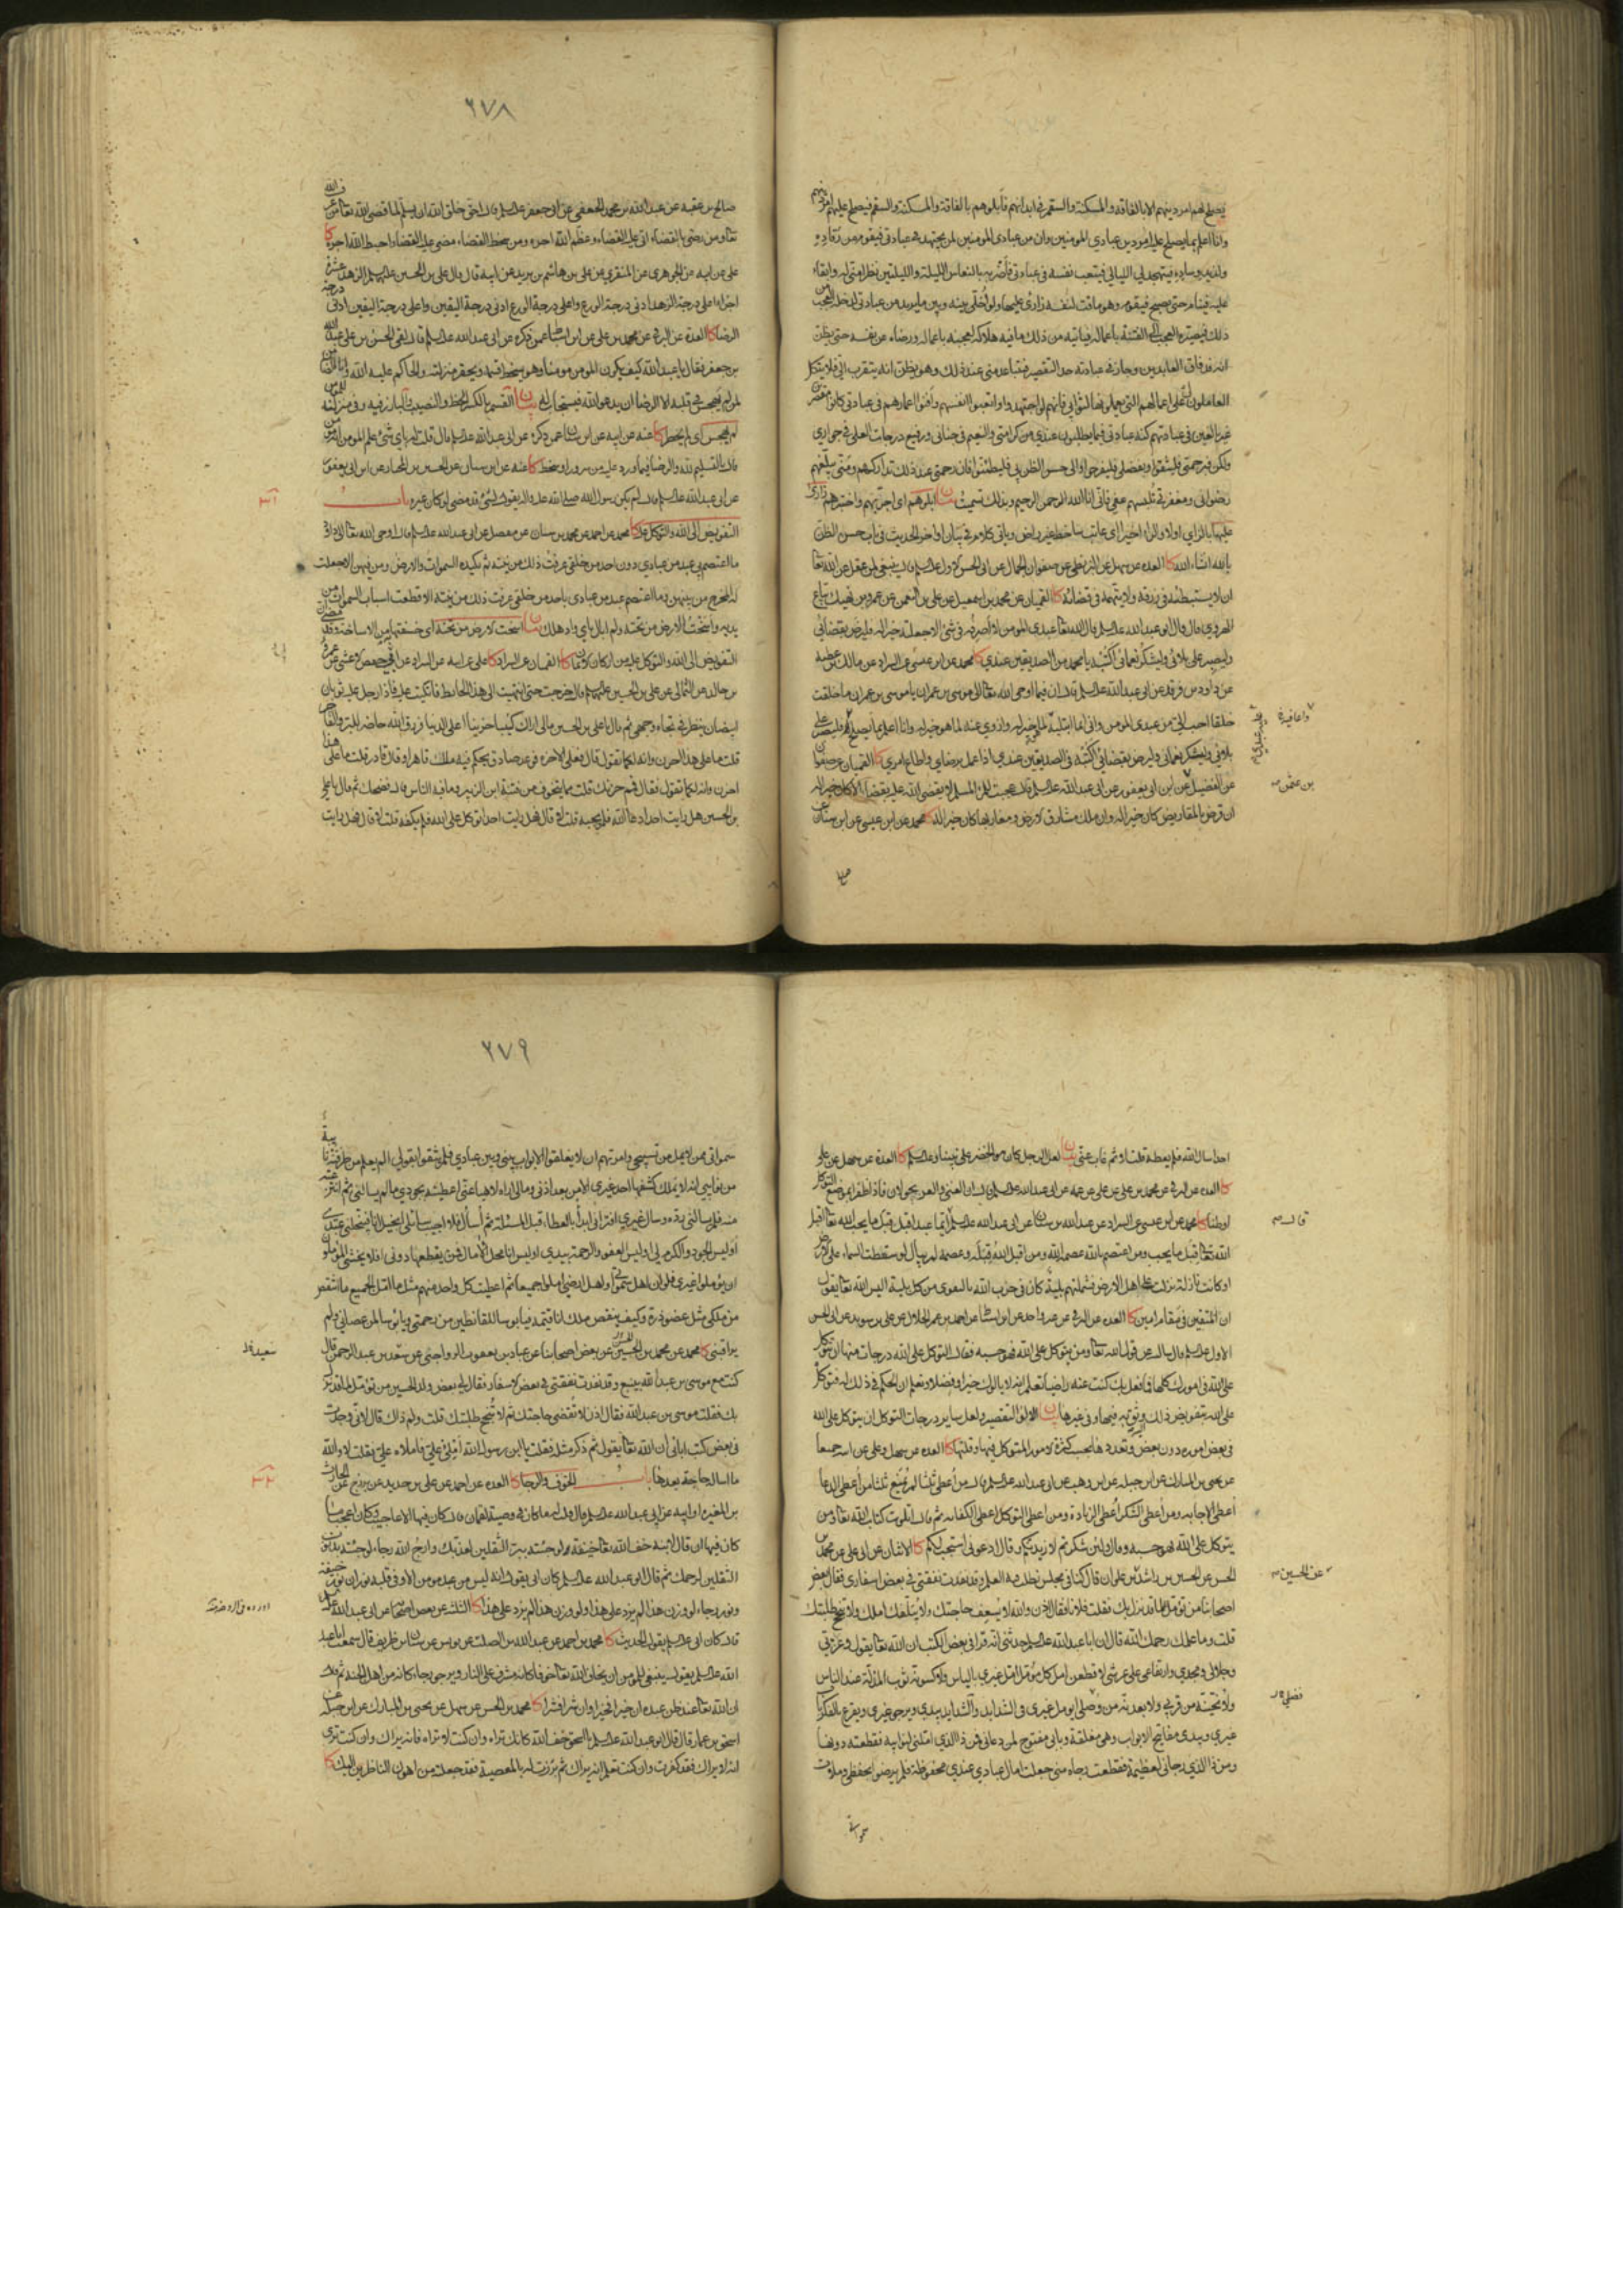 يصلح لهم امر دينهم الا بالفاقة والمسكنة والسقم في ابدانهم فابلوهم بالفاقة والمسكنة والسقم فيصلح عليهم امر دينهم
وانا اعلم بما يصلح عليه امر دين عبادي المؤمنين وان من عبادي المؤمنين لمن يجتهد في عبادتي فيقوم من رقاده
ولذيذ وساده فيتهجد لي الليالي فيتعب نفسه في عبادتي فأضربه بالنعاس الليلة والليلتين نظرا مني له وابقاء
عليه فينام حتى يصبح فيقوم وهو ماقت لنفسه زارئ عليها ولو أخلي بينه وبين ما يريد من عبادتي لدخله العجب
ذلك فيصيره العجب الى الفتنة باعماله فياتيه من ذلك ما فيه هلاكه لعجبه باعماله ورضاه عن نفسه حتى يظن
انه قد فاق العابدين وجاز في عبادته حد التقصير فيتباعد مني عند ذلك وهو يظن انه يتقرب الي فلا يتكل
العاملون على اعمالهم التي يعملونها لثوابي فانهم لو اجتهدوا واتعبوا انفسهم وأفنوا اعمارهم في عبادتي كانوا مقصرين
غير بالغين في عبادتهم كنه عبادتي فيما يطلبون عندي من كرامتي والنعيم في جناتي ورفيع درجات العلى في جواري
ولكن فبرحمتي فليثقوا وبفضلي فليفرحوا والى حسن الظن بي فليطمئنوا فان رحمتي عند ذلك تداركهم ومني يبلغهم
رضواني ومغفرتي تلبسهم عفوي فاني انا الله الرحمن الرحيم وبذلك تسميت بيان ابلوهم اى اجربهم واختبرهم زارئ
عليها بالزاي اولا والراء اخيرا اي عاتب ساخط غير راض وياتي كلام في بيان اواخر الحديث في باب حسن الظن
بالله انشاء الله كا العدة عن سهل عن البزنطي عن صفوان الجمال عن ابي الحسن الاول عليه السلم قال ينبغي لمن عقل عن الله تعا
ان لا يستبطئه في رزقه ولا يتهمه في قضائه كا القميان عن محمد بن اسمعيل عن علي بن النعمن عن عمرو بن نهيك بياع
الهروي قال قال ابو عبد الله عليه السلم قال الله تعا عبدي المؤمن لا أصرفه في شئ الا جعلته خيرا له فليرض بقضائي
وليصبر على بلائي وليشكر نعمائي اكتبه يا محمد من الصديقين عندي كا محمد عن ابن عيسى عن السراد عن مالك بن عطية
عن داود بن فرقد عن ابي عبد الله عليه السلم قال ان فيما اوحى الله تعالى الى موسى بن عمران يا موسى بن عمران ما خلقت
خلقا احب الي من عبدي المؤمن واني انما ابتليه لما هو خير له وازوي عنه لما هو خير له وانا اعلم بما يصلح فليصبر على
بلائي وليشكر نعمائي وليرض بقضائي اكتبه في الصديقين عندي اذا عمل برضاي واطاع امري كا القميان عن صفوان
عن الفضيل عن ابن ابي يعفور عن ابي عبد الله عليه السلم قال عجبت للمرء المسلم لا يقضي الله عليه بقضاء الا كان خيرا له
ان قرض بالمقاريض كان خيرا له وان ملك مشارق الارض ومغاربها كان خيرا له كا محمد عن ابن عيسى عن ابن سنان عن
واعافيه
بن عثمن
صالح
٢٧٨
صالح بن عقبة عن عبد الله بن محمد الجعفي عن ابي جعفر عليه السلم قال احق خلق الله ان يسلم لما قضى الله تعا من عرف الله
تعا ومن رضي بالقضاء اتى عليه القضاء وعظم الله اجره ومن سخط القضاء مضى عليه القضاء واحبط الله اجره كا
علي عن ابيه عن الجوهري عن المنقري عن علي بن هاشم بن بريد عن ابيه قال قال علي بن الحسين عليهما السلم الزهد عشرة
اجزاء اعلى درجة الزهد ادنى درجة الورع واعلى درجة الورع ادنى درجة اليقين واعلى درجة اليقين ادنى درجة
الرضا كا العدة عن البرقي عن محمد بن علي عن ابن اسباط عمن ذكره عن ابي عبد الله عليه السلم قال لقي الحسن بن علي عبد الله
بن جعفر فقال يا عبد الله كيف يكون المؤمن مؤمنا وهو يسخط قسمه ويحقر منزلته والحاكم عليه الله وانا الضامن
لمن لم يهجس في قلبه الا الرضا ان يدعو الله فيستجاب له بيان القسم بالكسر الحظ والنصيب
لم يهجس اى لم يخطر كا عنه عن ابيه عن ابن سنان عمن ذكره عن ابي عبد الله عليه السلم قال قلت له باي شئ علم المؤمن انه مؤمن
قال بالتسليم لله والرضا فيما ورد عليه من سرور او سخط كا عنه عن ابن سنان عن الحسين بن المختار عن ابن ابي يعفور
عن ابي عبد الله عليه السلم قال لم يكن رسول الله صلى الله عليه واله يقول لشئ قد مضى لو كان غيره باب
التفويض الى الله والتوكل عليه كا محمد عن احمد عن محمد بن سنان عن مفضل عن ابي عبد الله عليه السلم قال اوحى الله تعالى الى داود
ما اعتصم بي عبد من عبادي دون احد من خلقي عرفت ذلك من نيته ثم تكيده السموات والارض ومن فيهن الا جعلت
له المخرج من بينهن وما اعتصم عبد من عبادي باحد من خلقي عرفت ذلك من نيته الا قطعت اسباب السموات من
يديه واسخت الارض من تحته ولم ابال باي واد هلك بيان اسخت الارض من تحته اي خسفتها من الاساخة
التفويض الى الله والتوكل عليه من اركان الايمان كا القميان عن السراد كا علي عن ابيه عن السراد عن ابي حفص الاعشى عن عمرو
بن خالد عن الثمالي عن علي بن الحسين عليهما السلم قال خرجت حتى انتهيت الى هذا الحائط فاتكيت عليه فاذا رجل عليه ثوبان
ابيضان ينظر في تجاه وجهي ثم قال يا علي بن الحسين ما لي اراك كئيبا حزينا اعلى الدنيا فرزق الله حاضر للبر والفاجر
قلت ما على هذا احزن وانه لكما تقول قال فعلى الاخرة فوعد صادق يحكم فيه ملك قاهر او قال قادر قلت ما على هذا
احزن وانه لكما تقول فقال فمم حزنك قلت مما يتخوف من فتنة ابن الزبير وما فيه الناس قال فضحك ثم قال يا علي
بن الحسين هل رايت احدا دعا الله فلم يجبه قلت لا قال فهل رايت احدا توكل على الله فلم يكفه قلت لا قال فهل رايت
احدا سال الله فلم يعطه قلت لا ثم غاب عني بيان لعل الرجل كان هو الخضر على نبينا وعليه السلم كا العدة عن سهل عن علي
كا العدة عن البرقي عن محمد بن علي عن علي عن عمه عن ابي عبد الله عليه السلم قال ان الغنى والعز يجولان فاذا ظفرا بموضع التوكل
اوطنا كا محمد عن ابن عيسى عن السراد عن عبد الله بن سنان عن ابي عبد الله عليه السلم ايما عبد اقبل قبل ما يحب الله تعا اقبل
الله تعا قبل ما يحب ومن اعتصم بالله عصمه الله ومن اقبل الله قبله وعصمه لم يبال لو سقطت السماء على الارض
او كانت نازلة نزلت على اهل الارض فشملتهم بلية كان في حزب الله بالتقوى من كل بلية اليس الله تعا يقول
ان المتقين في مقام امين كا العدة عن البرقي عن غير واحد عن ابن اسباط عن احمد بن عمر الحلال عن علي بن سويد عن ابي الحسن
الاول عليه السلم قال سالته عن قول الله تعا ومن يتوكل على الله فهو حسبه فقال التوكل على الله درجات منها ان تتوكل
على الله في امورك كلها فما فعل بك كنت عنه راضيا تعلم انه لا يالوك خيرا وفضلا وتعلم ان الحكم في ذلك له فتوكل
على الله بتفويض ذلك اليه وثق به فيها وفي غيرها بيان الالو التقصير ولعل ساير درجات التوكل ان يتوكل على الله
في بعض اموره دون بعض وتعددها بحسب كثرة الامور المتوكل فيها وقلتها كا العدة عن سهل وعلي عن ابيه جميعا
عن يحيى بن المبارك عن ابن جبلة عن ابن وهب عن ابي عبد الله عليه السلم قال من أعطي ثلثا لم يمنع ثلثا من أعطي الدعا
أعطي الاجابة ومن أعطي الشكر أعطي الزيادة ومن اعطي التوكل اعطي الكفاية ثم قال اتلوت كتاب الله تعا ومن
يتوكل على الله فهو حسبه وقال ولئن شكرتم لازيدنكم وقال ادعوني استجب لكم كا الاثنان عن ابي علي عن محمد بن
الحسن عن الحسين بن راشد بن علوان قال كنا في مجلس نطلب فيه العلم وقد نفدت نفقتي في بعض اسفاري فقال بعض
اصحابنا من تؤمل لما قد نزل بك فقلت فلانا فقال اذن والله لا يسعف حاجتك ولا يبلغك املك ولا تنجح طلبتك
قلت وما علمك رحمك الله قال ان ابا عبد الله عليه السلم حدثني انه قرا في بعض الكتب ان الله تعا يقول وعزتي
وجلالي ومجدي وارتفاعي على عرشي لاقطعن امل كل مؤمل امل غيري بالياس ولاكسونه ثوب المذلة عند الناس
ولانحينه من قربي ولابعدنه من وصلي ايؤمل غيري في الشدايد والشدايد بيدي ويرجو غيري ويقرع بالفكر باب
غيري وبيدي مفاتيح الابواب وهي مغلقة وبابي مفتوح لمن دعاني فمن ذا الذي املني لنوائبه فقطعته دونها
ومن ذا الذي رجاني لعظيمة فقطعت رجاه مني جعلت امال عبادي عندي محفوظة فلم يرضوا بحفظي وملأت
قال
عن الحسين
فضلي
سمواتي
٢٧٩
سمواتي ممن لا يمل من تسبيحي وامرتهم ان لا يغلقوا الابواب بيني وبين عبادي فلم يثقوا بقولي الم يعلم من طرقته نائبة
من نوايبي انه لا يملك كشفها احد غيري الا من بعد اذني فما لي اراه لاهيا عني اعطيته بجودي ما لم يسالني ثم انتزعته
عنه فلم يسالني رده وسال غيري افتراني ابدأ بالعطاء قبل المسئلة ثم أسأل فلا اجيب سائلي ابخيل انا فيبخلني عبدي
أوليس الجود والكرم لي اوليس العفو والرحمة بيدي اوليس انا محل الامال فمن يقطعها دوني افلا يخشى المؤملون
ان يؤملوا غيري فلو ان اهل سمواتي واهل ارضي املوا جميعا ثم اعطيت كل واحد منهم مثل ما امل الجميع ما انتقص
من ملكي مثل عضو ذرة وكيف ينقص ملك انا قيمه فيا بؤسا للقانطين من رحمتي ويا بؤسا لمن عصاني ولم
يراقبني كا محمد عن محمد بن الحسين عن بعض اصحابنا عن عباد بن يعقوب الرواجني عن سعيد بن عبد الرحمن قال
كنت مع موسى بن عبد الله بينبع وقد نفدت نفقتي في بعض الاسفار فقال لي بعض ولد الحسين من تؤمل لما قد نزل
بك فقلت موسى بن عبد الله فقال اذن لا تقضى حاجتك ثم لا تنجح طلبتك قلت ولم ذاك قال لاني وجدت
في بعض كتب ابائي ان الله تعا يقول ثم ذكر مثله فقلت يا ابن رسول الله أملي علي فاملاه علي فقلت لا والله
ما اساله حاجة بعدها باب الخوف والرجا كا العدة عن احمد عن علي بن حديد عن بزرج عن الحارث
بن المغيرة او ابيه عن ابي عبد الله عليه السلم قال قلت له ما كان في وصية لقمان قال كان فيها الاعاجيب وكان اعجب ما
كان فيها ان قال لابنه خف الله تعا خيفة لو جئته ببر الثقلين لعذبك وارج الله رجاء لو جئته بذنوب
الثقلين لرحمك ثم قال ابو عبد الله عليه السلم كان ابي يقول انه ليس من عبد مؤمن الا وفي قلبه نوران نور خيفة
ونور رجاء لو وزن هذا لم يزد على هذا ولو وزن هذا لم يزد على هذا كا الثلثة عن بعض اصحابه عن ابي عبد الله عليه السلم
قال كان ابي عليه السلم يقول الحديث كا محمد بن احمد عن عبد الله بن الصلت عن يونس عن سنان بن طريف قال سمعت ابا عبد
الله عليه السلم يقول ينبغي للمؤمن ان يخاف الله تعا خوفا كانه مشرف على النار ويرجوه رجاء كانه من اهل الجنة ثم قال
ان الله تعا عند ظن عبده ان خيرا فخيرا وان شرا فشرا كا محمد بن الحسن عن سهل عن يحيى بن المبارك عن ابن جبلة عن
اسحق بن عمار قال قال ابو عبد الله عليه السلم يا اسحق خف الله كانك تراه وان كنت لا تراه فانه يراك وان كنت ترى
انه لا يراك فقد كفرت وان كنت تعلم انه يراك ثم برزت له بالمعصية فقد جعلته من اهون الناظرين اليك كا
سعيد